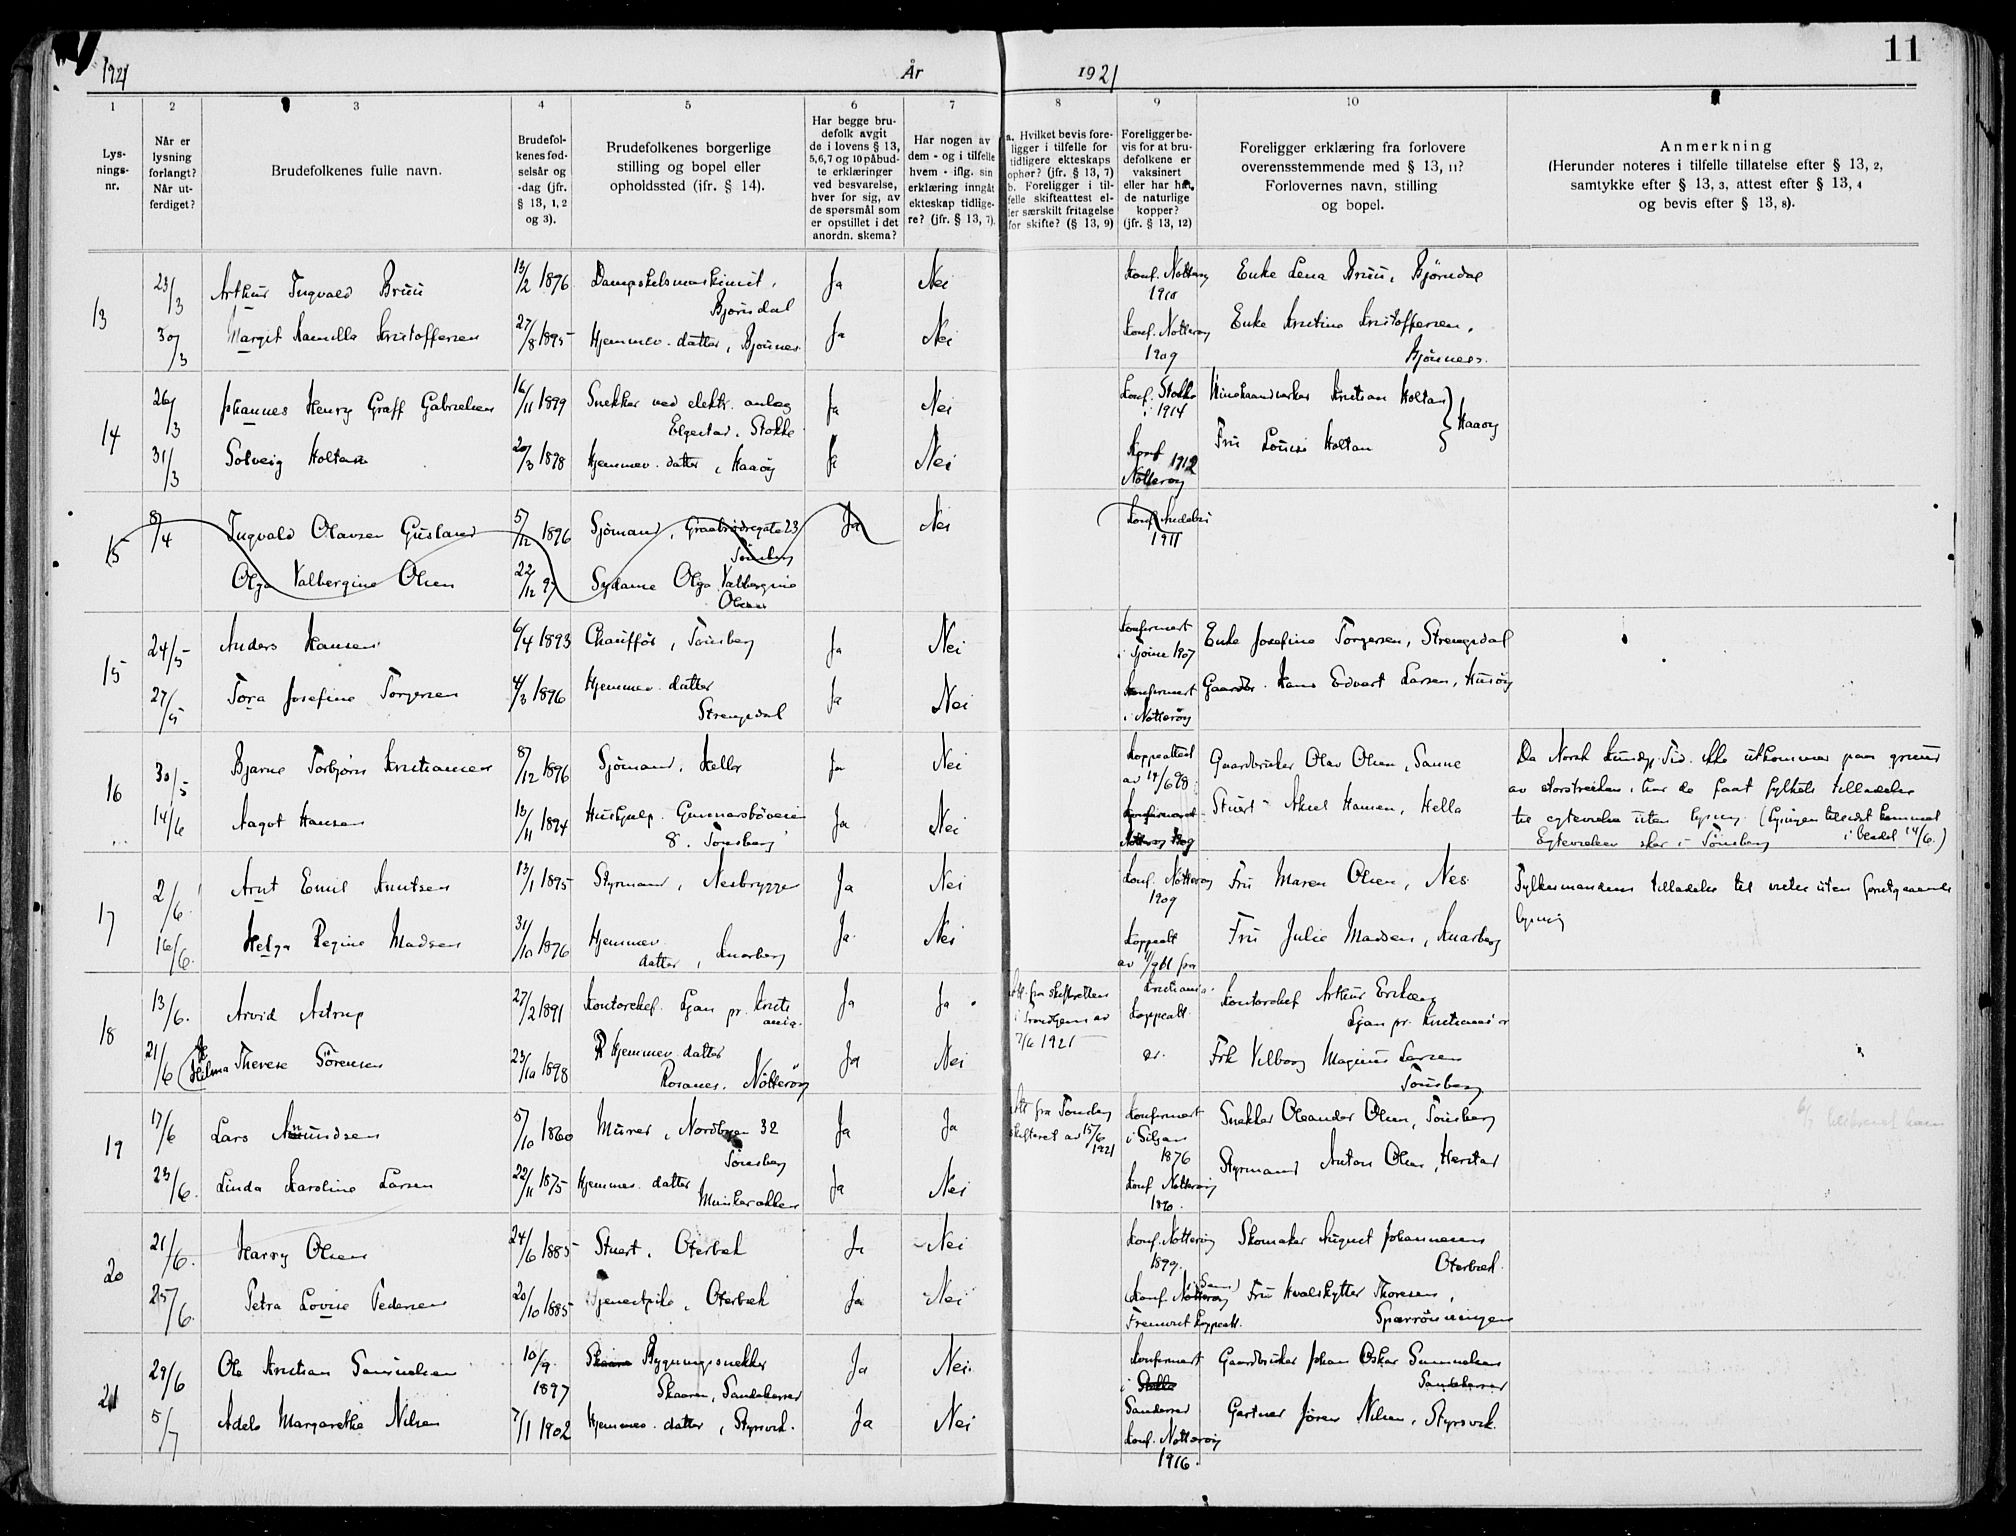 1921
År
1921
11
1
2
3
4
5
6
7
8
9
10
Lys-
nings-
nr.
Når er
lysning
forlangt?
Når ut-
ferdiget?
Brudefolkenes fulle navn.
Brudefol-
kenes fød-
selsår og
-dag (jfr.
§ 13, 1, 2
og 3).
Brudefolkenes borgerlige
stilling og bopel eller
opholdssted (jfr. § 14).
Har begge bru-
defolk avgit
de i lovens § 13,
5,6,7 og 10 påbud-
te erklæringer
ved besvarelse,
hver for sig, av
de spørsmål som
er opstillet i det
anordn. skema?
Har nogen av
dem - og i tilfelle
hvem - iflg. sin
erklæring inngåt
ekteskap tidlige-
re? (jfr. § 13, 7).
a. Hvilket bevis fore-
ligger i tilfelle for
tidligere ekteskaps
ophør? (jfr. § 13, 7)
b. Foreligger i til-
felle skifteattest el-
ler særskilt fritagelse
for skifte? (§ 13, 9)
Foreligger be-
vis for at bru-
defolkene er
vaksinert
eller har hat
de naturlige
kopper?
(jfr. § 13, 12)
Foreligger erklæring fra forlovere
overensstemmende med § 13, 11?
Forlovernes navn, stilling
og bopel.
Anmerkning
(Herunder noteres i tilfelle tillatelse efter § 13, 2,
samtykke efter § 13, 3, attest efter § 13, 4
og bevis efter § 13, 8).
13
23/3
Arthur Ingvald Bruu
13/2 1896
Dampskibsmaskinist,
Bjørndal
Ja
Nei
Konf. Nøtterøy
1910
Enke Lena Bruu, Bjørndal
30/3
Margit Kamilla Kristoffersen
27/8 1895
Hjemmev. datter, Bjønnes
Ja
Nei
Konf. Nøtterøy
1909
Enke Kristine Kristoffersen,
Bjønnes.
14
26/3
Johannes Henry Graff Gabrielsen
16/11 1899
Snekker ved elektr. anlæg
Elgestad, Stokke
Ja
Nei
Konf. Stokke
i 1914
Kristian Holtan
Haaøy
31/3
Solveig Holtan
20/3 1898
Hjemmev. datter, Haaøy
Ja
Nei
Konf 1912
Nøtterøy
Fru Louise Holtan
15
8/4
Ingvald Olavsen Gusland
5/12 1896
Sjømand, Graabrødregate 23
Tønsberg
Ja
Nei
Konf Andebu
1911
Olga Valbergine Olsen
22/12 97
Sydame Olga Valbergine
Olsen
15
24/5
Anders Hansen
6/4 1893
Chauffør, Tønsberg
Ja
Nei
Konfirmert
i Tjøme 1907
Enke Josefine Torgersen, Strengsdal
27/5
Tora Josefine Torgersen
4/3 1896
Hjemmev. datter
Strengsdal
Ja
Nei
Konfirmert
i Nøtterøy
Gaardbr. Hans Edvart Larsen, Husøy
16
30/5
Bjarne Torbjørn Kristiansen
8/12 1896
Sjømand, Hella
Ja
Nei
Koppeattest
av 14/6 98
Gaardbruker Olav Olsen, Sanne
Da Norsk Kundgj. Tid. ikke utkommer paa grund
14/6
Aagot Hansen
13/11 1894
Hushjelp. Gunnarsbøveien
8. Tønsberg
Ja
Nei
Konfirmeret
Nøtterøy 1909
Stuert Aksel Hansen, Hella
av storstreiken, har de faat fylkets tilladelse
til egtevielse uten lysning. (Lysningen tilsidst kommet
i bladet 14/6.)
Egtevielsen sker i Tønsberg
17
2/6
Arnt Emil Knutsen
13/1 1895
Styrmand, Nesbrygge
Ja
Nei
Konf. Nøtterøy
1909
Fru Maren Olsen, Nes
Fylkesmandens tilladelse til vielse uten forutgaaende
lysning
16/6.
Helga Regine Madsen
31/10 1896
Hjemmev.
datter, Knarberg
Ja.
Nei
Koppeatt
Fru Julie Madsen, Knarberg
18
13/6.
Arvid Astrup
27/2 1891
Kontorchef. Ljan pr. Kristi
ania.
Ja
Ja
Att. fra skifteretten
i Trondhjem av
7/6 1921
Kristiania.
Koppeatt.
Kontorchef Arthur
Ljan pr. Kristiania
21/6
Hilma Therese Sörensen
23/10 1898
Hjemmev. datter
Rosanes, Nøtterøy
Ja
Nei
Frk Valborg Magnus Larsen
Tønsberg
19
17/6
Lars Amundsen
5/10 1860
Murer, Nordbyen 32
Tønsberg
Ja
Ja
Att fra Tønsberg
skifteret av 15/6
1921
Konfirmert
i Siljan
1876
Snekker Oleander Olsen, Tønsberg
23/6.
Linda Karoline Larsen
22/11 1875
Hjemmev. datter
Munkerækken
Ja
Nei
Konf Nøtterøy
1890.
Styrmand Anton Olsen, Herstad
20
21/6.
Harry Olsen
24/6 1885
Stuert, Oterbek
Ja
Nei
Konf. Nøtterøy
1899.
Skomaker August Johannessen
Oterbek.
25/6.
Petra Lovise Pedersen
20/10 1885
Tjenestpike, Oterbek
Ja
Nei
Konf. Nøtterøy
Fremvist koppeatt.
Fru Hvalskytter Thoresen,
21
29/6
Ole Kristian Samuelsen
10/9.
1897
Skaaren Bygningssnekker
Skaaren, Sandeherred
Ja
Nei.
Konfirmert
i Stokke
Sandeherred
Gaardbruker Johan Oskar Samuelsen
Sandeherred
5/7
Adele Margarethe Nilsen
7/1 1902
Hjemmev. datter, Styrsvik.
Ja
Nei
Konf. Nøtterøy
1916.
Gartner Jørgen Nilsen, Styrsvik.